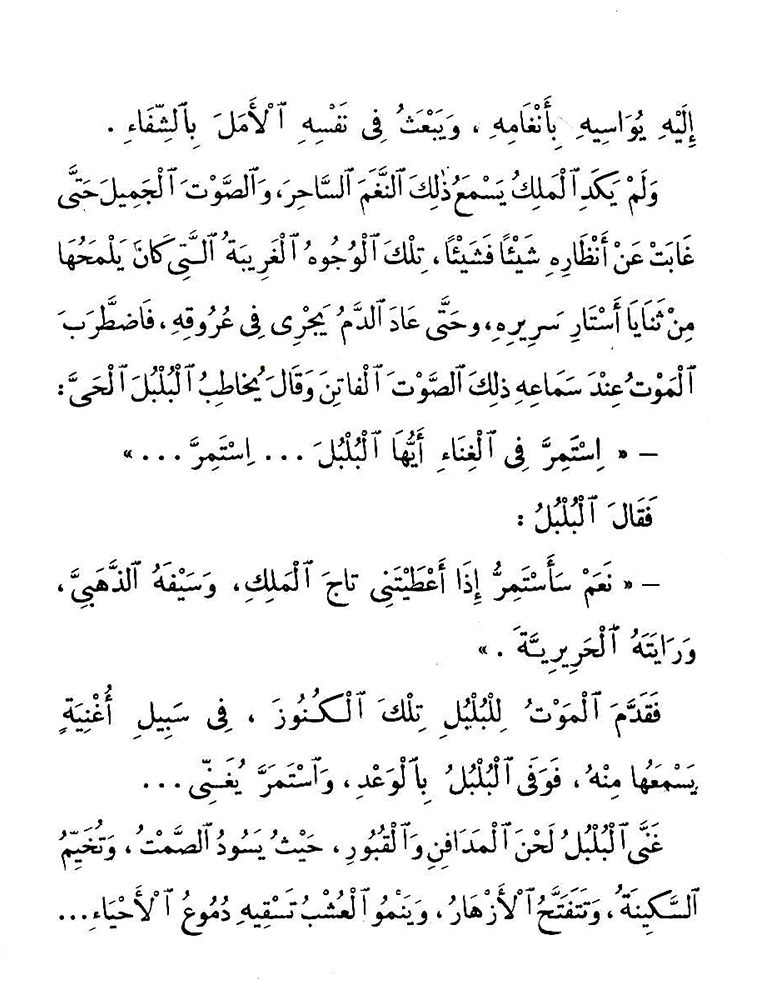 إِلَيْهِ يُوَاسِيهِ بِأَنْغَامِهِ ، وَيَبْعَثُ فِى نَفْسِهِ ٱلْأَمَلَ بِٱلشِّفَاءِ .
وَلَمْ يَكَدِ ٱلْمَلِكُ يَسْمَعُ ذٰلِكَ ٱلنَّغَمَ ٱلسَّاحِرَ، وَٱلصَّوْتَ ٱلْجَمِيلَ حَتَّى
غَابَتْ عَنْ أَنْظَارِهِ شَيْئًا فَشَيْئًا ، تِلْكَ ٱلْوُجُوهُ ٱلْغَرِيبَةُ ٱلَّتِى كَانَ يَلْمَحُهَا
مِنْ ثَنَايَا أَسْتَارِ سَرِيرِهِ، وحَتَّى عَادَ ٱلدَّمُ يَجْرِى فِى عُرُوقِهِ ، فَاضطَّرَبَ
ٱلْمَوْتُ عِنْدَ سَمَاعِهِ ذلِكَ ٱلصَّوْتَ ٱلْفاتِنَ وَقَالَ يُخاطِبُ ٱلْبُلْبُلَ ٱلْحَىَّ :
– « اِسْتَمِرَّ فِى ٱلْغِنَاءِ أَيُّهَا ٱلْبُلْبُلَ ... اِسْتَمِرَّ ... »
فَقَالَ ٱلْبُلْبُلُ :
– « نَعَمْ سَأَسْتَمِرُّ إِذَا أَعْطَيْتَنِى تاجَ ٱلْمَلِكِ، وَسَيْفَهُ ٱلذَّهَبِىَّ،
وَرَايَتَهُ ٱلْحَرِيرِيَّةَ . »
فَقَدَّمَ ٱلْمَوْتُ لِلْبُلْبُلِ تِلْكَ ٱلْكُنُوزَ ، فِى سَبِيلِ أُغْنِيَةٍ
يَسْمَعُها مِنْهُ ، فَوَفَى ٱلْبُلْبُلُ بِٱلْوَعْدِ، وَٱسْتَمَرَّ يُغَنِّى ...
غَنَّى ٱلْبُلْبُلُ لَحْنَ ٱلْمَدَافِنِ وَٱلْقُبُورِ ، حَيْثُ يَسُودُ ٱلصَّمْتُ ، وَتُخَيِّمُ
ٱلسَّكِينَةُ ، وَتَتَفَتَّحُ ٱلْأَزْهَارُ، وَيَنْمُو ٱلْعُشْبُ تَسْقِيهِ دُمُوعُ ٱلْأَحْيَاءِ ...